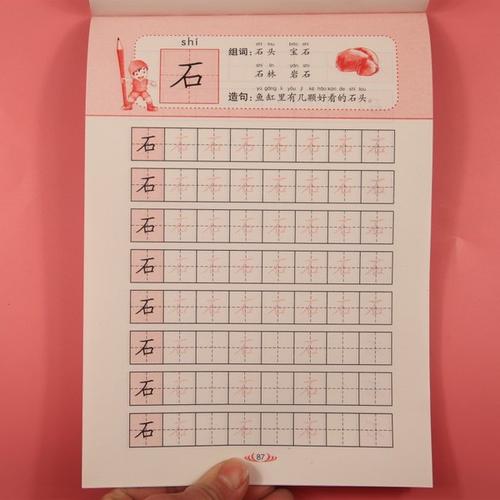 shí
石
shí tou bǎo shí
组词: 石头 宝石
shí lín yán shí
石林 岩石
yú gāng li yǒu jǐ kē hǎo kàn de shí tou
造句: 鱼缸里有几颗好看的石头。
石 石 石 石 石 石 石 石
石 石 石 石 石 石 石 石
石 石 石 石 石 石 石 石
石 石 石 石 石 石 石 石
石 石 石 石 石 石 石 石
石 石 石 石
石 石 石 石
石 石 石 石
87